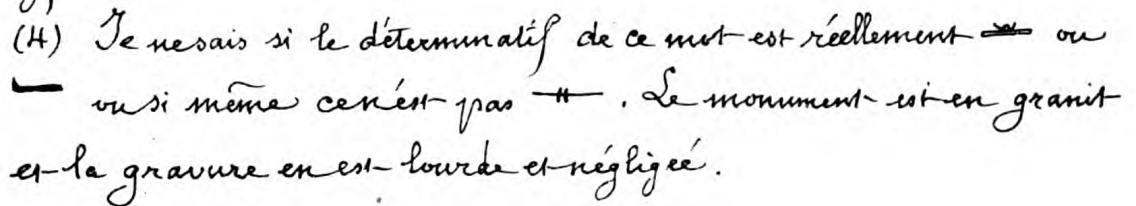 (4) Je ne sais si le déterminatif de ce mot est réellement ou
ou si même ce n'est pas 𓊃. Le monument est en granit
et la gravure en est lourde et négligée.